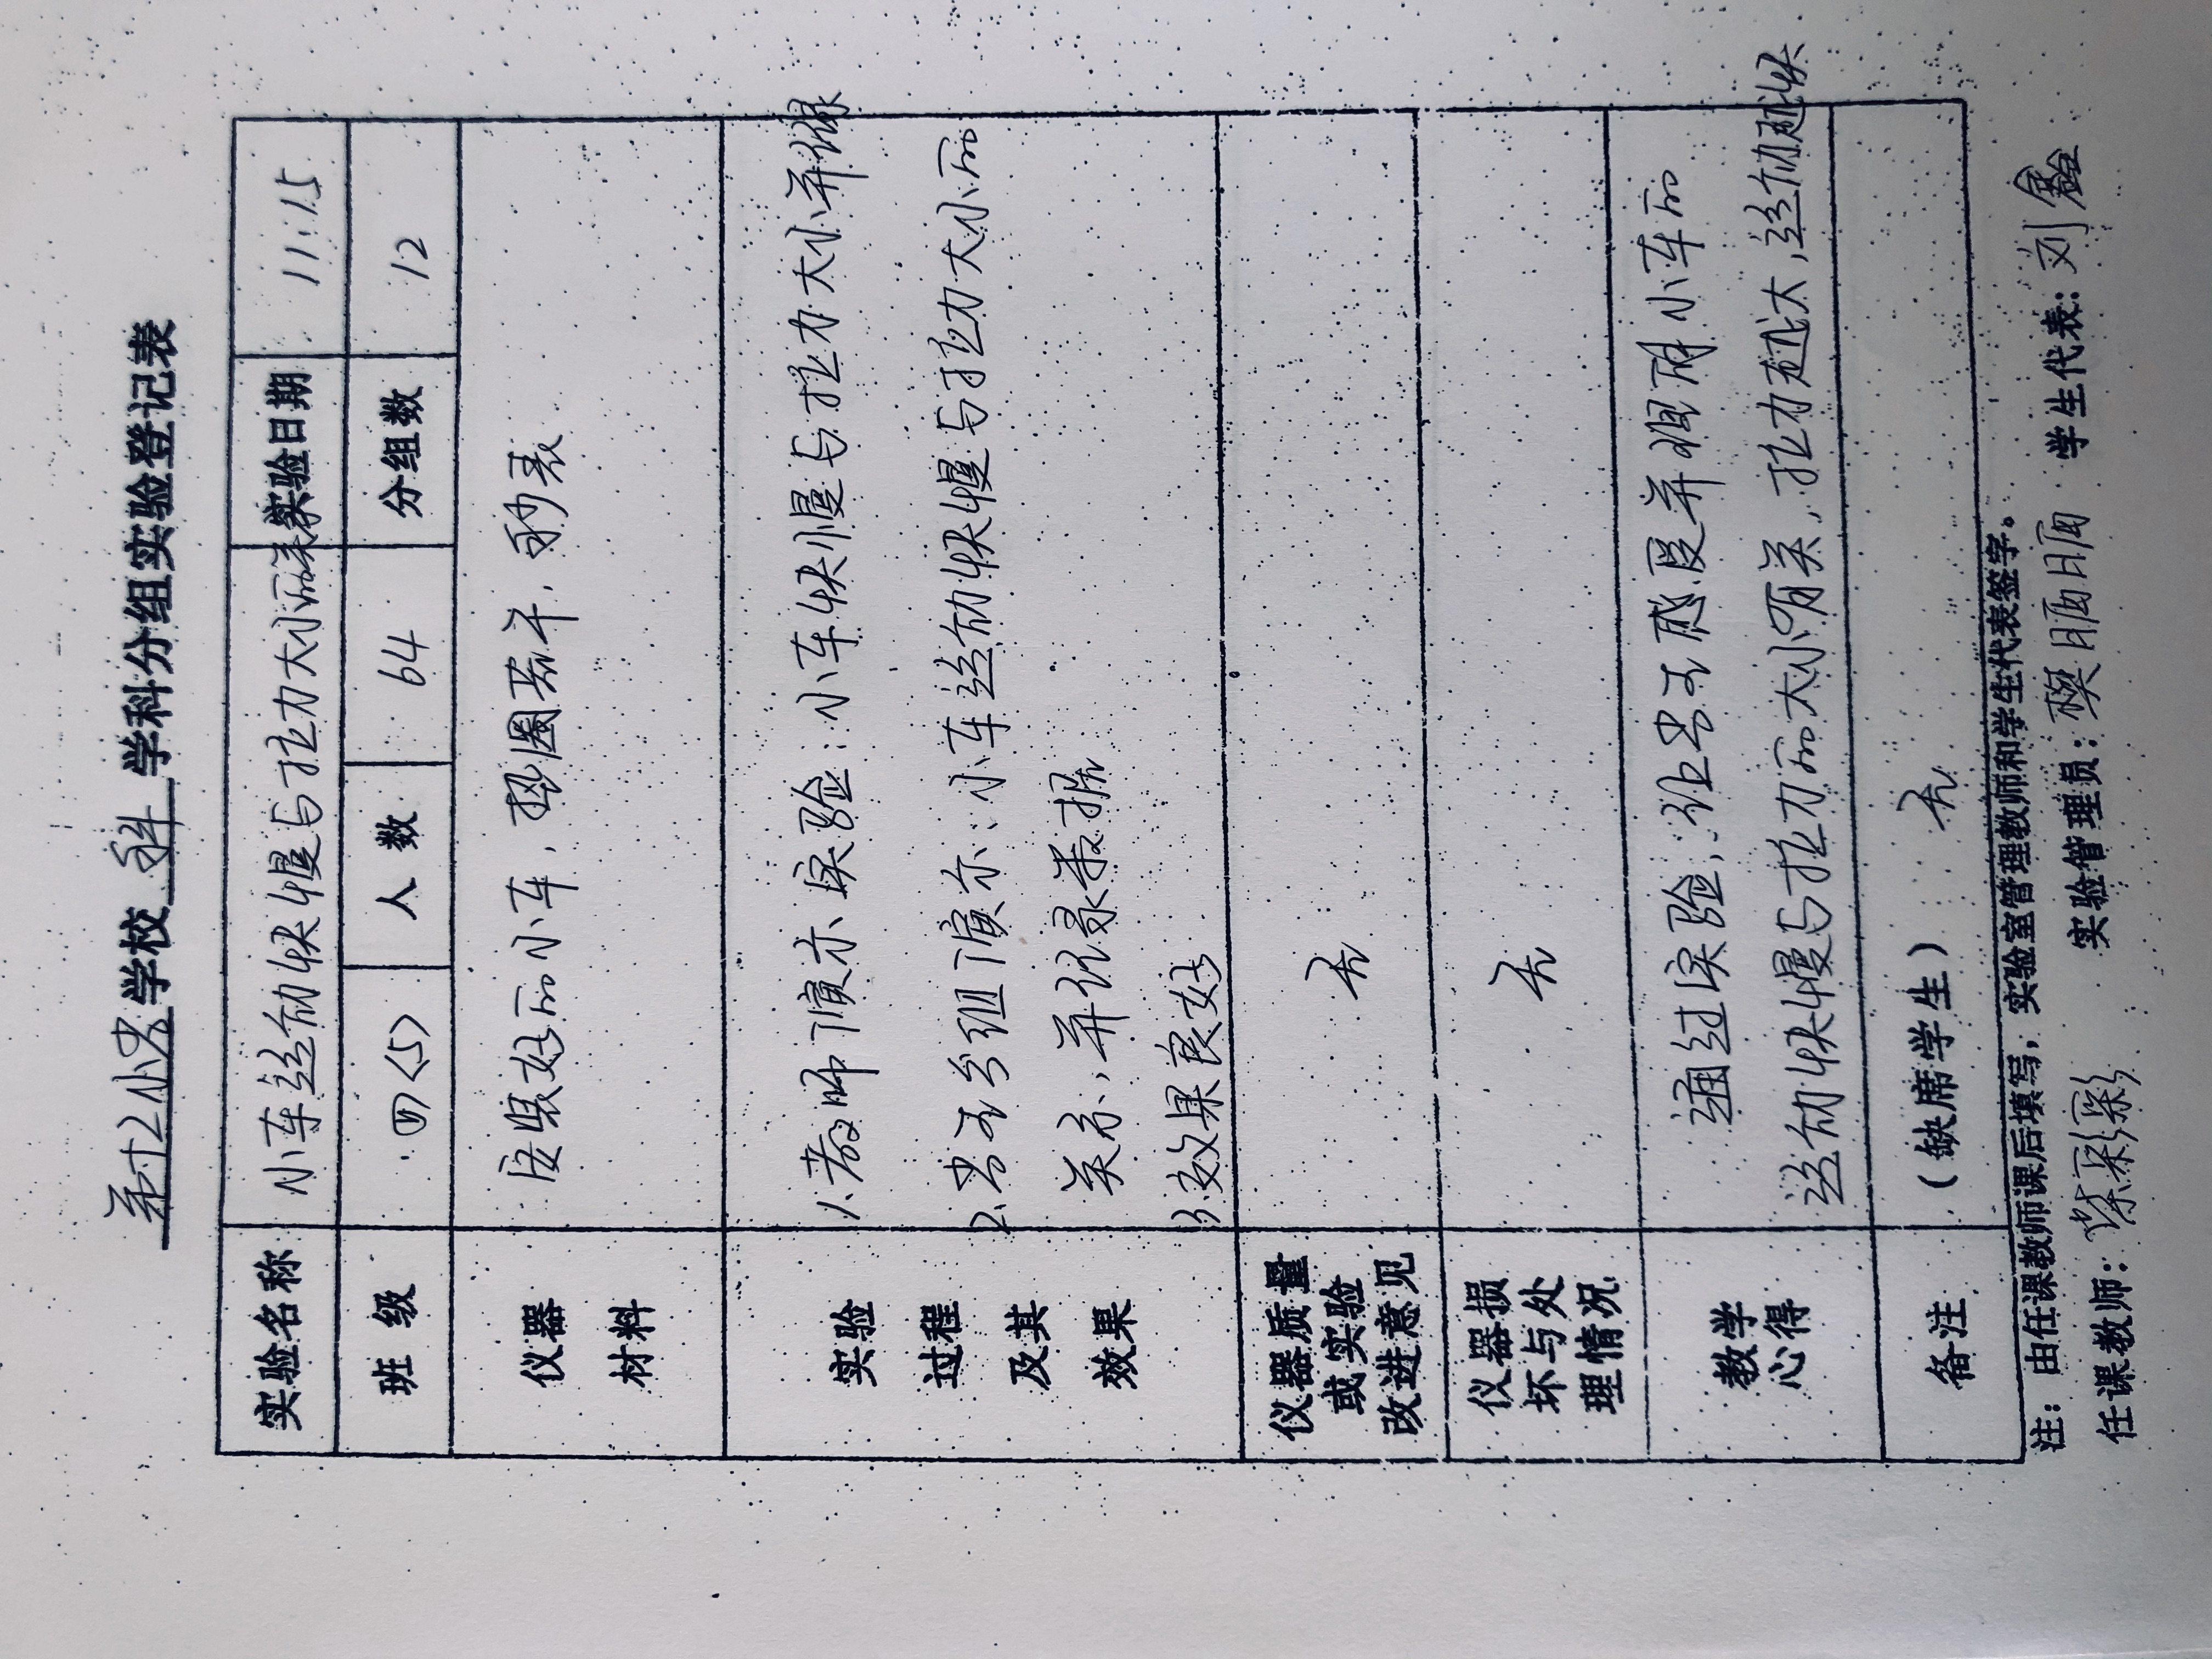 学校 科 学科分组实验登记表
实验名称 小车运动快慢与拉力大小的关系 实验日期 11.15
班级 四(5) 人数 64 分组数 12
仪器材料 安装好的小车，垫圈若干，秒表
实验过程及其效果 1.教师演示实验：小车快慢与拉力大小并记录
2.学生分组演示：小车运动快慢与拉力大小的
关系，并记录数据
3.效果良好
仪器质量或实验改进意见 无
仪器损坏与处理情况 无
教学心得 通过实验，让学生感受并理解小车的
运动快慢与拉力的大小有关，拉力越大，运动越快
备注 （缺席学生） 无
注：由任课教师课后填写，实验室管理教师和学生代表签字。
任课教师： 实验管理员： 学生代表：刘鑫